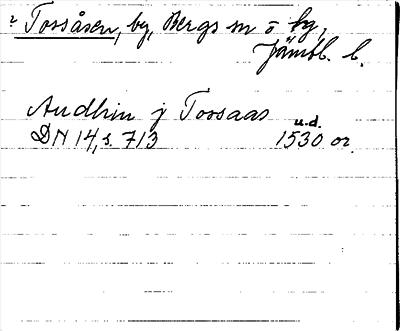 ? Torsåsen, by, Bergs sn o hg,
Jämtl. l.
Audhin j Torsaas
u.d.
DN 14, s. 713 1530 or.